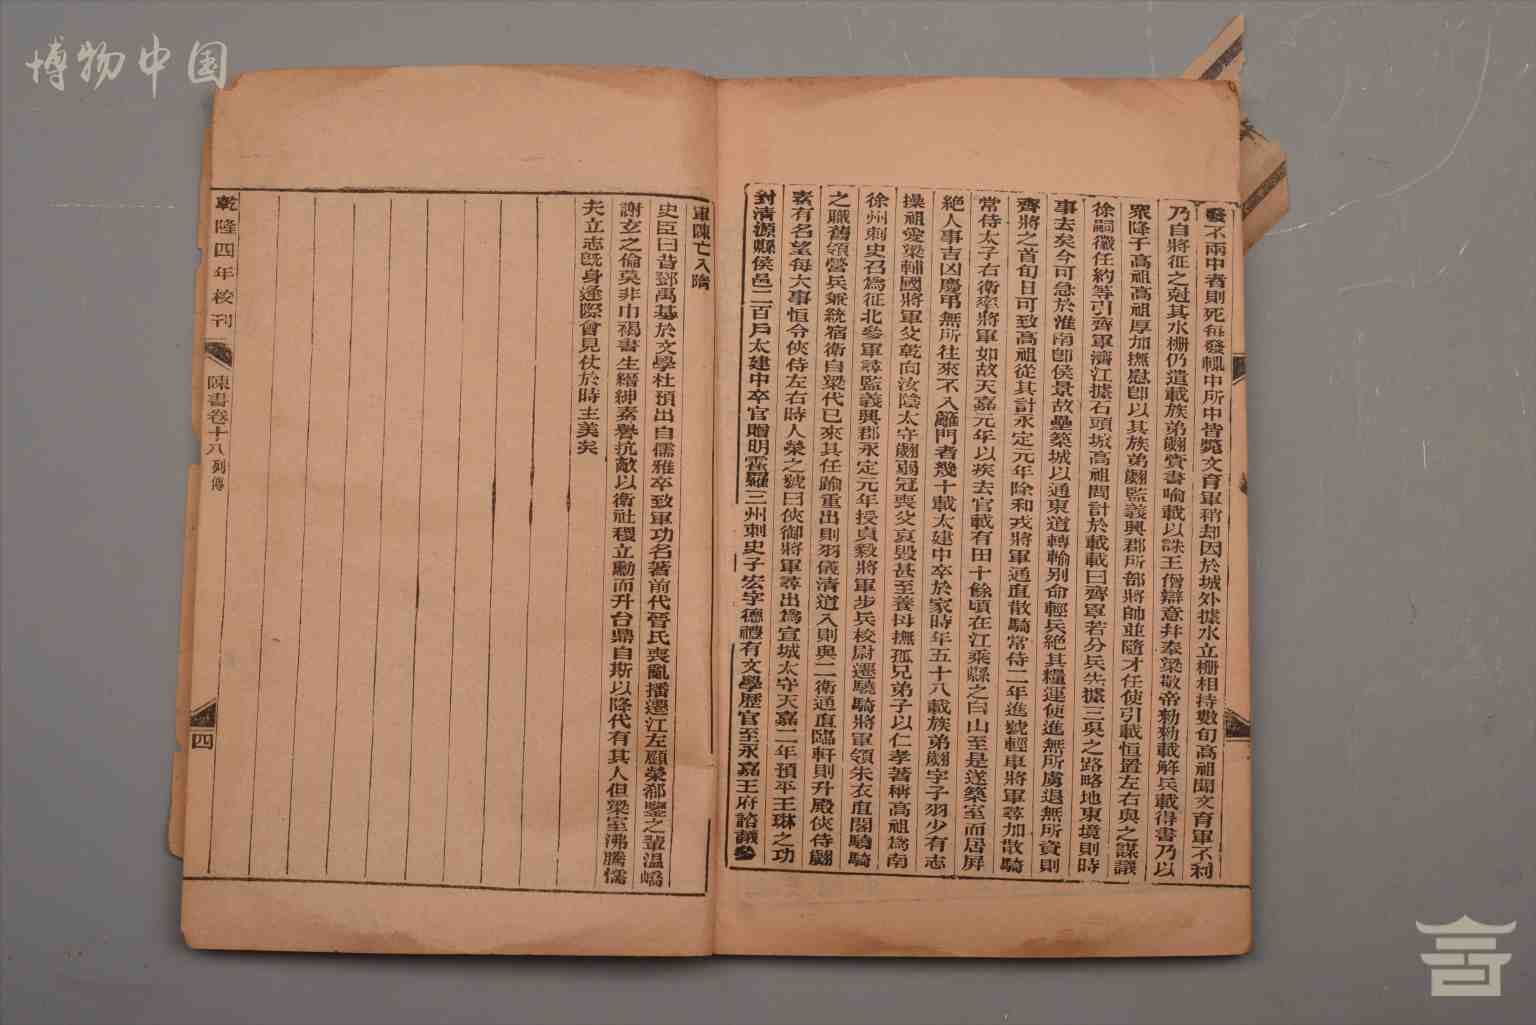 博物中国
發不兩中者則死每發輒中所中皆斃文育軍稍却因於城外據水立柵相持數旬高祖聞文育軍不利
乃自將征之尅其水柵仍遣載族弟翽賫書喻載以誅王僧辯意并奉梁敬帝勑勑載解兵載得書乃以
眾降于高祖高祖厚加撫慰卽以其族弟翽監義興郡所部將帥並隨才任使引載恒置左右與之謀議
徐嗣徽任約等引齊軍濟江據石頭城高祖問計於載載曰齊軍若分兵先據三吳之路略地東境則時
事去矣今可急於淮南卽侯景故壘築城以通東道轉輸別命輕兵絕其糧運使進無所虜退無所資則
齊將之首旬日可致高祖從其計永定元年除和戎將軍通直散騎常侍二年進號輕車將軍尋加散騎
常侍太子右衛率將軍如故天嘉元年以疾去官載有田十餘頃在江乘縣之白山至是遂築室而居屏
絕人事吉凶慶弔無所往來不入籬門者幾十載太建中卒於家時年五十八載族弟翽字子羽少有志
操祖愛梁輔國將軍父乾向汝陰太守翽弱冠喪父哀毀甚至養母撫孤兄弟子以仁孝著稱高祖爲南
徐州刺史召爲征北參軍尋監義興郡永定元年授貞毅將軍步兵校尉遷驍騎將軍領朱衣直閤驍騎
之職舊領營兵兼統宿衛自梁代已來其任踰重出則羽儀清道入則與二衛通直臨軒則升殿俠侍翽
素有名望每大事恒令俠侍左右時人榮之號曰俠御將軍尋出爲宣城太守天嘉二年預平王琳之功
封清源縣侯邑二百戶太建中卒官贈明霍羅三州刺史子宏字德禮有文學歷官至永嘉王府諮議參
軍陳亡入隋
史臣曰昔鄧禹基於文學杜預出自儒雅卒致軍功名著前代晉氏喪亂播遷江左顧榮郗鑒之輩溫嶠
謝玄之倫莫非巾褐書生縉紳素譽抗敵以衛社稷立勳而升台鼎自斯以降代有其人但梁室沸騰懦
夫立志既身逢際會見仗於時主美矣
乾隆四年校刊
陳書卷十八列傳
四